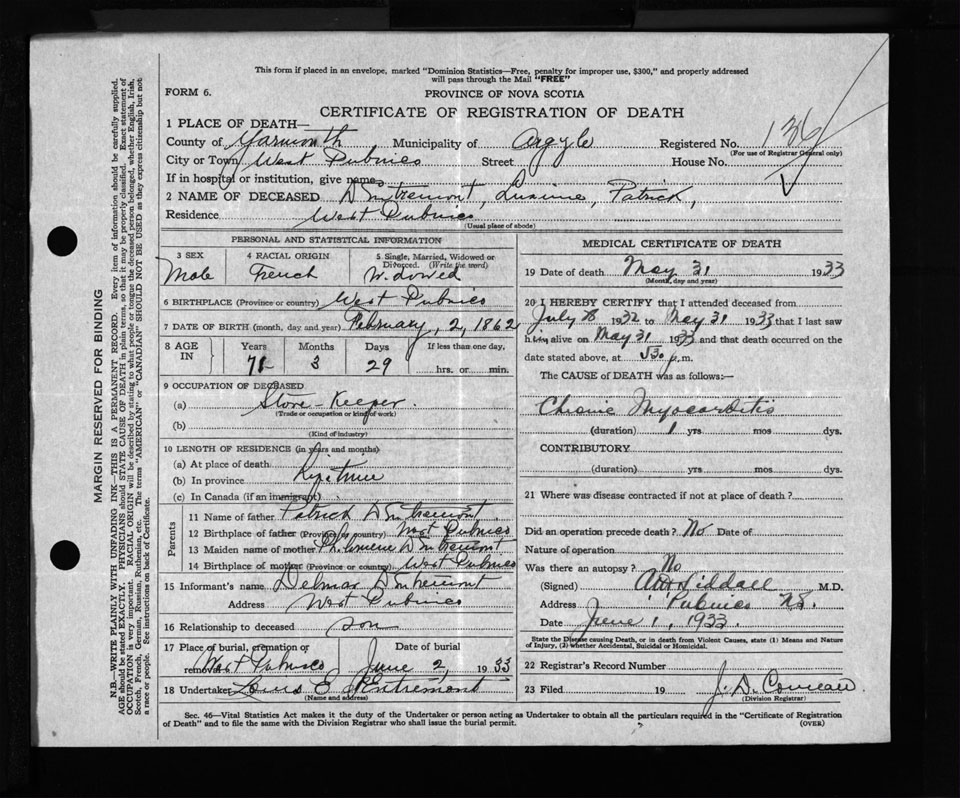 This form if placed in an envelope, marked "Dominion Statistics—Free, penalty for improper use, $300," and properly addressed
will pass through the Mail "FREE"
FORM 6.
PROVINCE OF NOVA SCOTIA
CERTIFICATE OF REGISTRATION OF DEATH
1 PLACE OF DEATH—
County of Yarmouth Municipality of Argyle Registered No. 136
(For use of Registrar General only)
City or Town West Pubnico Street House No.
If in hospital or institution, give name
2 NAME OF DECEASED D'Entremont, Patrick,
Residence West Pubnico
(Usual place of abode)
PERSONAL AND STATISTICAL INFORMATION
3 SEX 4 RACIAL ORIGIN 5 Single, Married, Widowed or
Divorced. (Write the word)
Male French Widowed
6 BIRTHPLACE (Province or country) West Pubnico
7 DATE OF BIRTH (month, day and year) February, 2, 1862
8 AGE IN Years Months Days If less than one day.
71 3 29 hrs. or min.
9 OCCUPATION OF DECEASED
(a) Store-Keeper
(Trade or occupation or kind of work)
(b)
(Kind of industry)
10 LENGTH OF RESIDENCE (in years and months)
(a) At place of death
(b) In province Lifetime
(c) In Canada (if an immigrant)
Parents
11 Name of father Patrick D'Entremont
12 Birthplace of father (Province or country) West Pubnico
13 Maiden name of mother D'Entremont
14 Birthplace of mother (Province or country) West Pubnico
15 Informant's name Delmar D'Entremont
Address West Pubnico
16 Relationship to deceased son
17 Place of burial, cremation or removal Date of burial
West Pubnico June 2, 1933
18 Undertaker Louis E D'Entremont
(Name and address)
MEDICAL CERTIFICATE OF DEATH
19 Date of death May 31 1933
(Month, day and year)
20 I HEREBY CERTIFY that I attended deceased from
July 28 1932 to May 31 1933 that I last saw
him alive on May 31 1933 and that death occurred on the
date stated above, at p.m.
The CAUSE of DEATH was as follows:—
Chronic Myocarditis
(duration) 1 yrs mos dys.
CONTRIBUTORY
(duration) yrs mos dys.
21 Where was disease contracted if not at place of death?
Did an operation precede death? No Date of
Nature of operation
Was there an autopsy? No
(Signed) Siddall M.D.
Address Pubnico N.S.
Date June 1, 1933
State the Disease causing Death, or in death from Violent Causes, state (1) Means and Nature
of Injury, (2) whether Accidental, Suicidal or Homicidal.
22 Registrar's Record Number
23 Filed 19 J. D. Comeau
(Division Registrar)
Sec. 46—Vital Statistics Act makes it the duty of the Undertaker or person acting as Undertaker to obtain all the particulars required in the "Certificate of Registration
of Death" and to file the same with the Division Registrar who shall issue the burial permit.
(OVER)
MARGIN RESERVED FOR BINDING
N.B.—WRITE PLAINLY WITH UNFADING INK—THIS IS A PERMANENT RECORD. Every item of information should be carefully supplied.
AGE should be stated EXACTLY. PHYSICIANS should STATE CAUSE OF DEATH in plain terms, so that it may be properly classified. Exact statement of
OCCUPATION is very important. RACIAL ORIGIN will be described by stating to what people or tongue the deceased person belonged, whether English, Irish,
Scotch, French, German, Russian, Ruthenian, etc. The terms "AMERICAN" or "CANADIAN" SHOULD NOT BE USED as they express citizenship but not
a race or people. See instructions on back of Certificate.